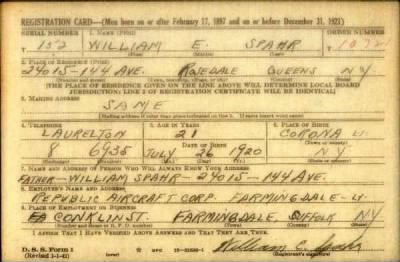 REGISTRATION CARD—(Men born on or after February 17, 1897 and on or before December 31, 1921)
SERIAL NUMBER 1. NAME (Print) ORDER NUMBER
T 152 WILLIAM E. SPAHR
2. PLACE OF RESIDENCE (Print)
24015-144 AVE. ROSEDALE QUEENS N.Y.
[THE PLACE OF RESIDENCE GIVEN ON THE LINE ABOVE WILL DETERMINE LOCAL BOARD
JURISDICTION; LINE 2 OF REGISTRATION CERTIFICATE WILL BE IDENTICAL]
3. MAILING ADDRESS
SAME
[Mailing address if other than place indicated on line 2. If same insert word same]
4. TELEPHONE 5. AGE IN YEARS 6. PLACE OF BIRTH
LAURELTON 21 CORONA LI
DATE OF BIRTH
8 6935 JULY 26 1920 N.Y.
7. NAME AND ADDRESS OF PERSON WHO WILL ALWAYS KNOW YOUR ADDRESS
FATHER-WILLIAM SPAHR-24015-144 AVE.
8. EMPLOYER'S NAME AND ADDRESS
REPUBLIC AIRCRAFT CORP. FARMINGDALE-
9. PLACE OF EMPLOYMENT OR BUSINESS
CONKLIN ST. FARMINGDALE, SUFFOLK N.Y.
I AFFIRM THAT I HAVE VERIFIED ABOVE ANSWERS AND THAT THEY ARE TRUE.
D. S. S. Form 1
(Revised 1-1-42) GPO William Spahr
(Registrant's signature)